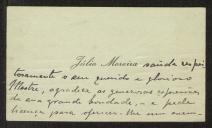 Júlio Moreira saúda respei
tosamente o seu querido e glorioso
Mestre, agradece as generosas expressões
da sua grande bondade, e pede
licença para oferecer-lhe um exem-